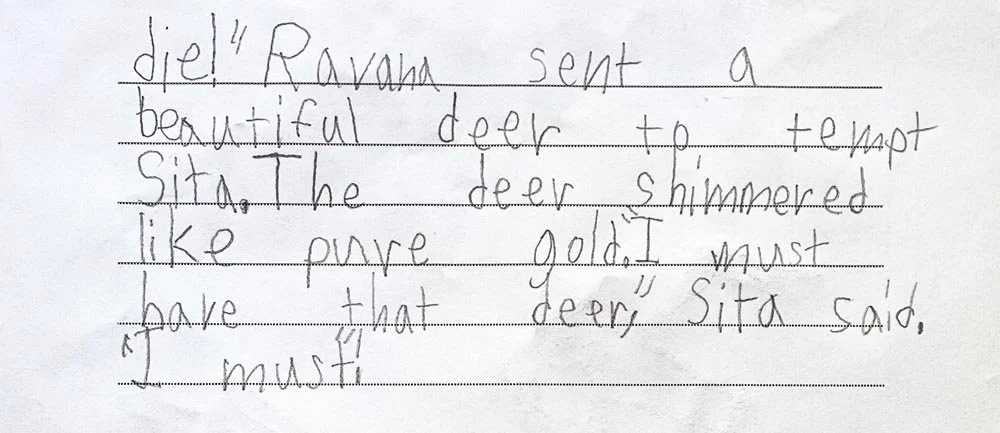 die!" Ravana sent a
beautiful deer to tempt
Sita. The deer shimmered
like pure gold. "I must
have that deer," Sita said.
"I must!"